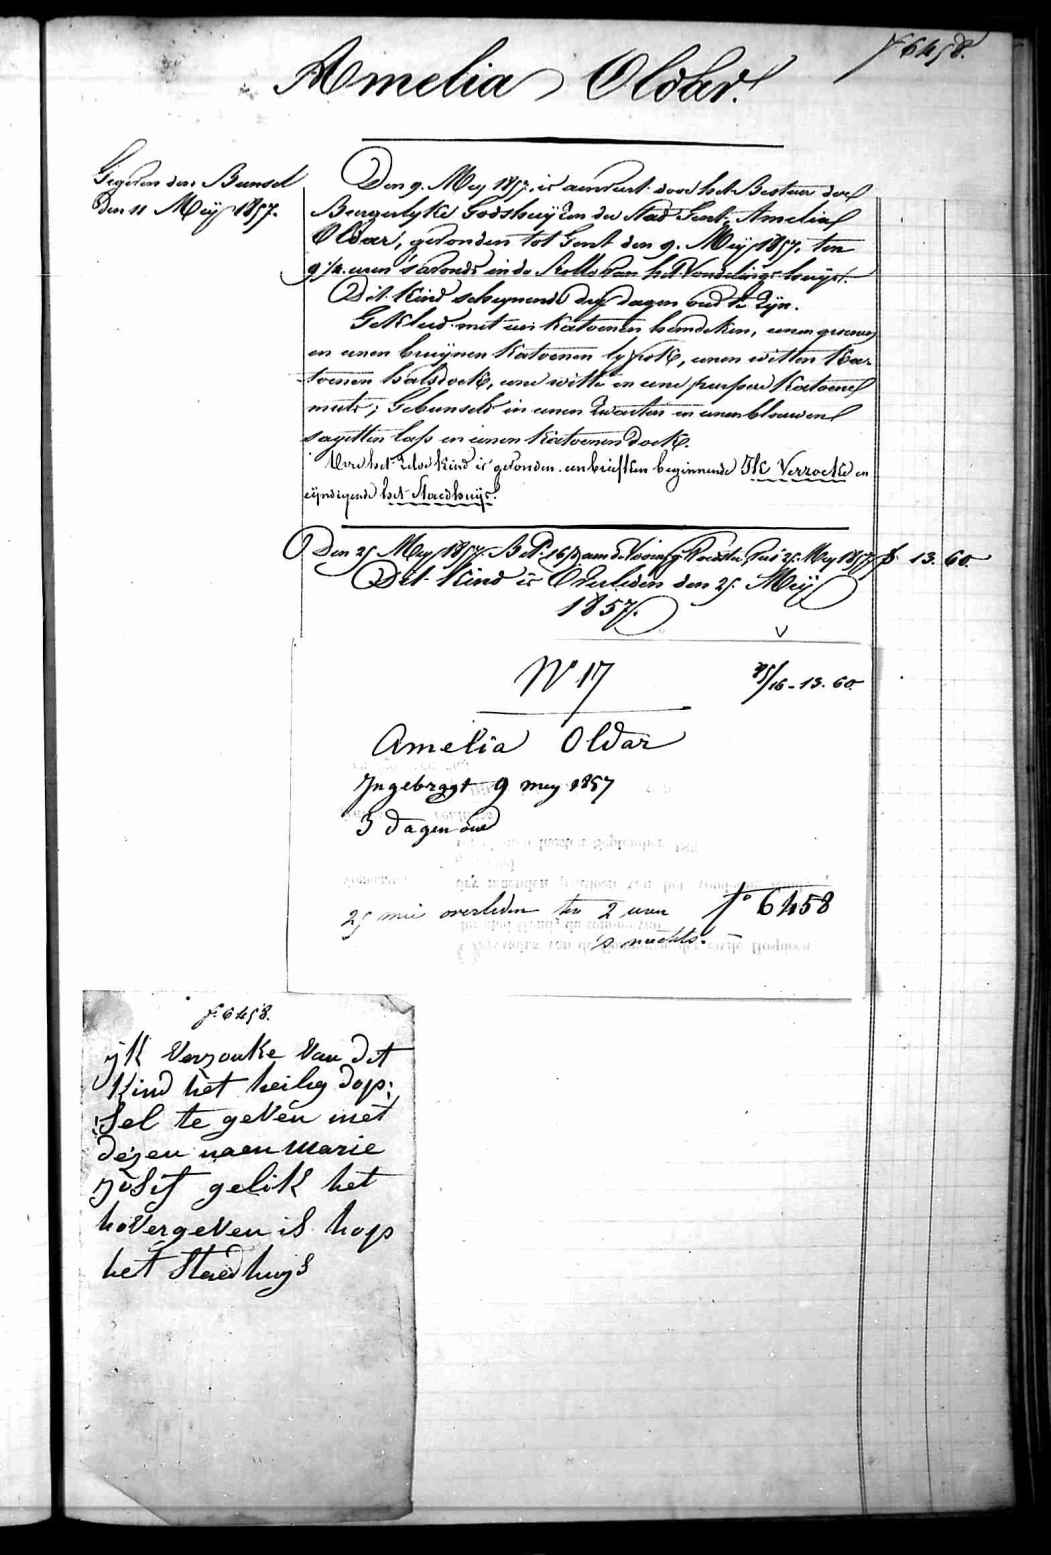 f° 6458.
Amelia Oldar.
Gegeven den Bunsel
den 11 Meij 1857.
Den 9. Mey 1857. is aenveert door het Bestuer der
Burgerlyke Godshuyzen der Stad Gent, Amelia
Oldar, gevonden tot Gent den 9. Meij 1857, ten
9½ uren 's avonds in de Rolle van het Vondelingshuys.
Dit Kind schynende dry dagen oud te zyn.
Gekleed met een Katoenen hemdeken, eenen
en eenen bruynen Katoenen lyfrok, eenen witten Ka-
toenen halsdoek, eene witte en eene purpere Katoene
muts; Gebunseld in eenen zwarten en eenen blauwen
sayetten lap en eenen Katoenen doek.
Over het zelve kind is gevonden een briefken beginnende IK Verzoeke en
eyndigende het Staedhuijs.
Den 25 Mey 1857. Bet. 16 aan de Voedster 25 Mey 1857 f. 13. 60.
Dit Kind is Overleden den 25. Meij
1857.
N° 17
25/16 - 13. 60.
Amelia Oldar
Ingebragt 9 mey 1857
3 dagen oud
25 mei overleden ten 2 uren
's nachts.
f° 6458
f° 6458.
ijk Verzouke Van dit
Kind het heilig dop:
:Sel te geven met
dezen naen Marie
gelik het
hovergeven is hop
het Staedhuijs